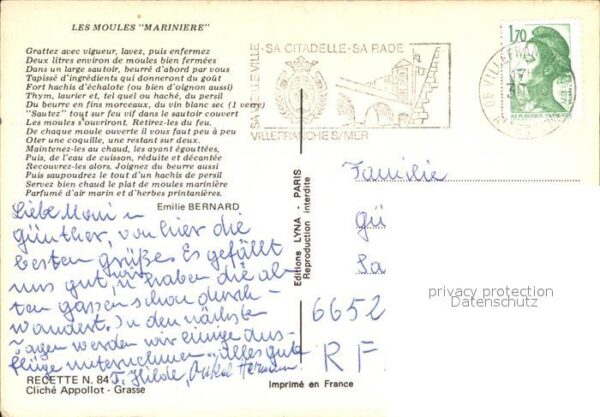 LES MOULES "MARINIERE"
Grattez avec vigueur, lavez, puis enfermez
Deux litres environ de moules bien fermées
Dans un large sautoir, beurré d'abord par vous
Tapissé d'ingrédients qui donneront du goût
Fort hachis d'échalote (ou bien d'oignon aussi)
Thym, laurier et tel, du persil que voici
Du beurre en fins morceaux, du vin blanc sec (1 verre)
"Sautez" tout sur feu vif dans le sautoir couvert
Les moules s'ouvriront. Retirez-les du feu,
De chaque moule ouverte il vous faut peu à peu
Oter une coquille, une restant sur deux.
Maintenez-les au chaud, les ayant égouttées,
Puis, de l'eau de cuisson, réduite et décantée
Recouvrez-les alors. Joignez du beurre aussi
Puis saupoudrez le tout d'un hachis de persil
Servez bien chaud le plat de moules marinière
Parfumé d'air marin et d'herbes printanières.
Emilie BERNARD
Liebe Moni u
Günther, von hier die
besten Grüße. Es gefällt
uns gut, wir haben die al-
ten Gassen schon durch-
wandert. In den nächsten
Tagen werden wir einige Aus-
flüge unternehmen. Alles gute
T. Hilde, Onkel Hermann
RECETTE N. 84
Cliché Appollot - Grasse
Editions LYNA - PARIS
Reproduction interdite
Imprimé en France
SA VIEILLE VILLE - SA CITADELLE - SA RADE
VILLEFRANCHE S/MER
1,70
REPUBLIQUE FRANÇAISE
Familie
gü
Sa
6652
R F
privacy protection
Datenschutz